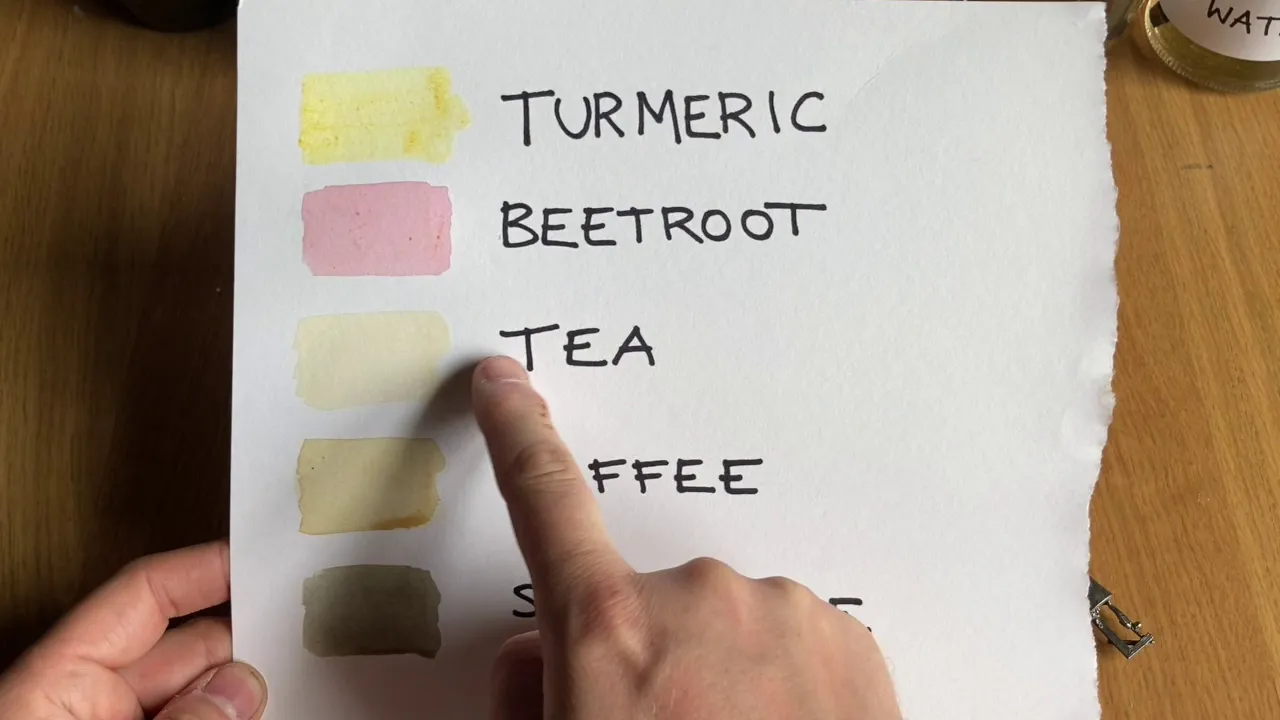 WAT
TURMERIC
BEETROOT
TEA
FFEE